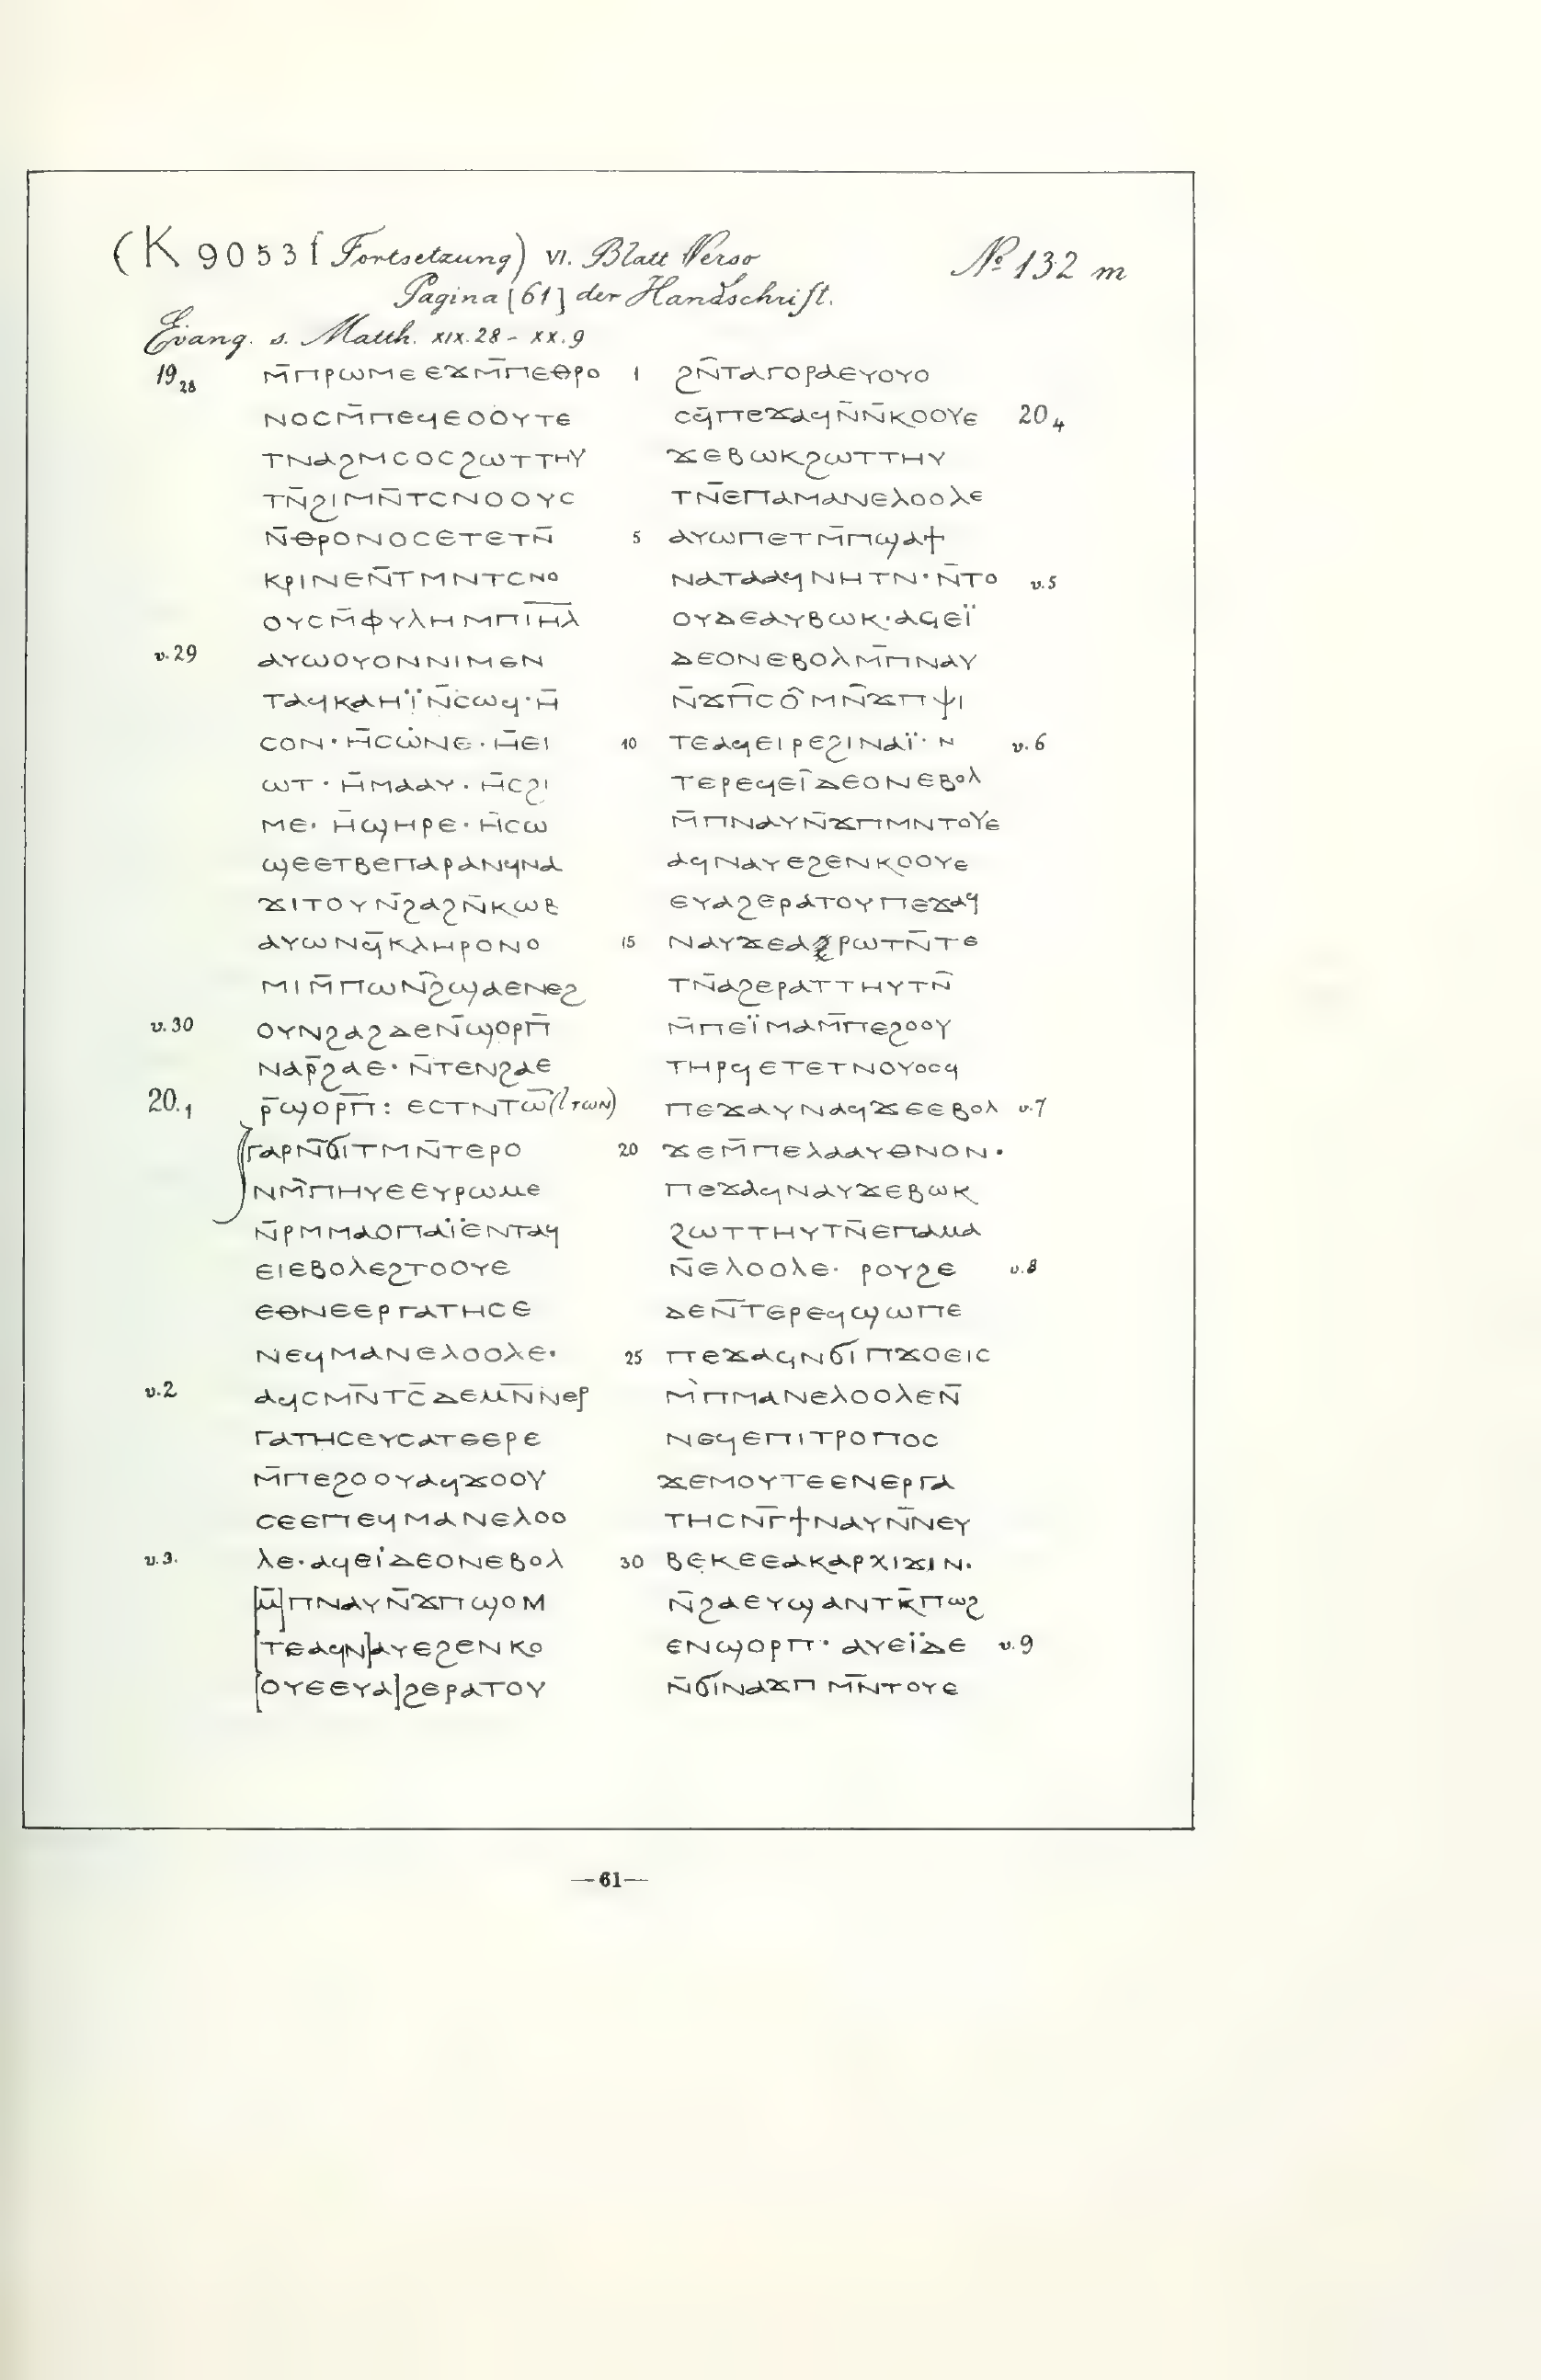 (K 9053 f Fortsetzung) VI. Blatt Verso
№ 132 m
Pagina [61] der Handschrift.
Evang. s. Matth. XIX.28 - XX.9
19 28 ⲙ̄ⲡⲣⲱⲙⲉⲉϫⲙ̄ⲡⲉⲑⲣⲟ
ⲛⲟⲥⲙ̄ⲡⲉϥⲉⲟⲟⲩⲧⲉ
ⲧⲛⲁϩⲙⲥⲟⲥϩⲱⲧⲧⲏⲩ
ⲧⲛ̄ϩⲓⲙⲛ̄ⲧⲥⲛⲟⲟⲩⲥ
ⲛ̄ⲑⲣⲟⲛⲟⲥⲉⲧⲉⲧⲛ̄
ⲕⲣⲓⲛⲉⲛ̄ⲧⲙⲛⲧⲥⲛⲟ
ⲟⲩⲥⲙ̄ⲫⲩⲗⲏⲙⲡⲓ̅ⲏ̅ⲗ̅
v.29 ⲁⲩⲱⲟⲩⲟⲛⲛⲓⲙⲉⲛ
ⲧⲁϥⲕⲁⲏⲓ̈ⲛ̄ⲥⲱϥ·ⲏ̄
ⲥⲟⲛ·ⲏ̄ⲥⲱ̇ⲛⲉ·ⲏ̄ⲉⲓ
ⲱⲧ·ⲏ̄ⲙⲁⲁⲩ·ⲏ̄ⲥϩⲓ
ⲙⲉ·ⲏ̄ϣⲏⲣⲉ·ⲏ̄ⲥⲱ
ϣⲉⲉⲧⲃⲉⲡⲁⲣⲁⲛϥⲛⲁ
ϫⲓⲧⲟⲩⲛ̄ϩⲁϩⲛ̄ⲕⲱⲃ
ⲁⲩⲱⲛϥ̄ⲕⲗⲏⲣⲟⲛⲟ
ⲙⲓⲙ̄ⲡⲱⲛ̄ϩϣⲁⲉⲛⲉϩ
v.30 ⲟⲩⲛϩⲁϩⲇⲉⲛ̄ϣⲟⲣⲡ̄
ⲛⲁⲣ̄ϩⲁⲉ·ⲛ̄ⲧⲉⲛϩⲁⲉ
20.1 ⲣ̄ϣⲟⲣⲡ̄: ⲉⲥⲧⲛⲧⲱ̄(l ⲧⲱⲛ)
ⲅⲁⲣⲛ̄ϭⲓⲧⲙⲛ̄ⲧⲉⲣⲟ
ⲛⲙ̄ⲡⲏⲩⲉⲉⲩⲣⲱⲙⲉ
ⲛ̄ⲣⲙⲙⲁⲟⲡⲁⲓ̈ⲉⲛⲧⲁϥ
ⲉⲓⲉⲃⲟⲗⲉϩⲧⲟⲟⲩⲉ
ⲉⲑⲛⲉⲉⲣⲅⲁⲧⲏⲥⲉ
ⲛⲉϥⲙⲁⲛⲉⲗⲟⲟⲗⲉ·
v.2 ⲁϥⲥⲙⲛ̄ⲧⲥ̄ⲇⲉⲙⲛ̄ⲛ̄ⲉⲣ
ⲅⲁⲧⲏⲥⲉⲩⲥⲁⲧⲉⲉⲣⲉ
ⲙ̄ⲡⲉϩⲟⲟⲩⲁϥϫⲟⲟⲩ
ⲥⲉⲉⲡⲉϥⲙⲁⲛⲉⲗⲟⲟ
v.3. ⲗⲉ·ⲁϥⲉⲓ̈ⲇⲉⲟⲛⲉⲃⲟⲗ
[ⲙ̄]ⲡⲛⲁⲩⲛ̄ϫⲡϣⲟⲙ
[ⲧⲉⲁϥⲛ]ⲁⲩⲉϩⲉⲛⲕⲟ
[ⲟⲩⲉⲉⲩⲁ]ϩⲉⲣⲁⲧⲟⲩ
1 ϩⲛ̄ⲧⲁⲅⲟⲣⲁⲉⲩⲟⲩⲟ
ⲥϥ̄ⲡⲉϫⲁϥⲛ̄ⲛ̄ⲕⲟⲟⲩⲉ 20 4
ϫⲉⲃⲱⲕϩⲱⲧⲧⲏⲩ
ⲧⲛ̄ⲉⲡⲁⲙⲁⲛⲉⲗⲟⲟⲗⲉ
5 ⲁⲩⲱⲡⲉⲧⲙ̄ⲡϣⲁϯ
ⲛⲁⲧⲁⲁϥⲛⲏⲧⲛ·ⲛ̄ⲧⲟ v.5
ⲟⲩⲇⲉⲁⲩⲃⲱⲕ·ⲁϥⲉⲓ̈
ⲇⲉⲟⲛⲉⲃⲟⲗⲙ̄ⲡⲛⲁⲩ
ⲛ̄ϫⲡ̄ⲥⲟ̂ⲙⲛ̄ϫⲡⲯⲓ
10 ⲧⲉⲁϥⲉⲓⲣⲉϩⲓⲛⲁⲓ̈·ⲛ v.6
ⲧⲉⲣⲉϥⲉⲓ̂ⲇⲉⲟⲛⲉⲃⲟⲗ
ⲙ̄ⲡⲛⲁⲩⲛ̄ϫⲡⲙⲛⲧⲟⲩⲉ
ⲁϥⲛⲁⲩⲉϩⲉⲛⲕⲟⲟⲩⲉ
ⲉⲩⲁϩⲉⲣⲁⲧⲟⲩⲡⲉϫⲁϥ
15 ⲛⲁⲩϫⲉⲁϩⲣⲱⲧⲛ̄ⲧⲉ
ⲧⲛ̄ⲁϩⲉⲣⲁⲧⲧⲏⲩⲧⲛ̄
ⲙ̄ⲡⲉⲓ̈ⲙⲁⲙ̄ⲡⲉϩⲟⲟⲩ
ⲧⲏⲣϥⲉⲧⲉⲧⲛⲟⲩⲟⲥϥ
ⲡⲉϫⲁⲩⲛⲁϥϫⲉⲉⲃⲟⲗ v.7
20 ϫⲉⲙ̄ⲡⲉⲗⲁⲁⲩⲑⲛⲟⲛ·
ⲡⲉϫⲁϥⲛⲁⲩϫⲉⲃⲱⲕ
ϩⲱⲧⲧⲏⲩⲧⲛ̄ⲉⲡⲁⲙⲁ
ⲛ̄ⲉⲗⲟⲟⲗⲉ· ⲣⲟⲩϩⲉ v.8
ⲇⲉⲛ̄ⲧⲉⲣⲉϥϣⲱⲡⲉ
25 ⲡⲉϫⲁϥⲛϭⲓⲡϫⲟⲉⲓⲥ
ⲙ̀ⲡⲙⲁⲛⲉⲗⲟⲟⲗⲉⲛ̄
ⲛⲉϥⲉⲡⲓⲧⲣⲟⲡⲟⲥ
ϫⲉⲙⲟⲩⲧⲉⲉⲛⲉⲣⲅⲁ
ⲧⲏⲥⲛⲅ̄ϯⲛⲁⲩⲛ̄ⲛⲉⲩ
30 ⲃⲉⲕⲉⲉⲁⲕⲁⲣⲭⲓϫⲓⲛ·
ⲛ̄ϩⲁⲉⲩϣⲁⲛⲧⲕ̄ⲡⲱϩ
ⲉⲛϣⲟⲣⲡ· ⲁⲩⲉⲓ̈ⲇⲉ v.9
ⲛ̄ϭⲓⲛⲁϫⲡ ⲙⲛ̄ⲧⲟⲩⲉ
—61—